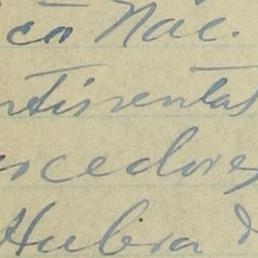 ca Nac.
ntisientas
ocedores
Hubra d